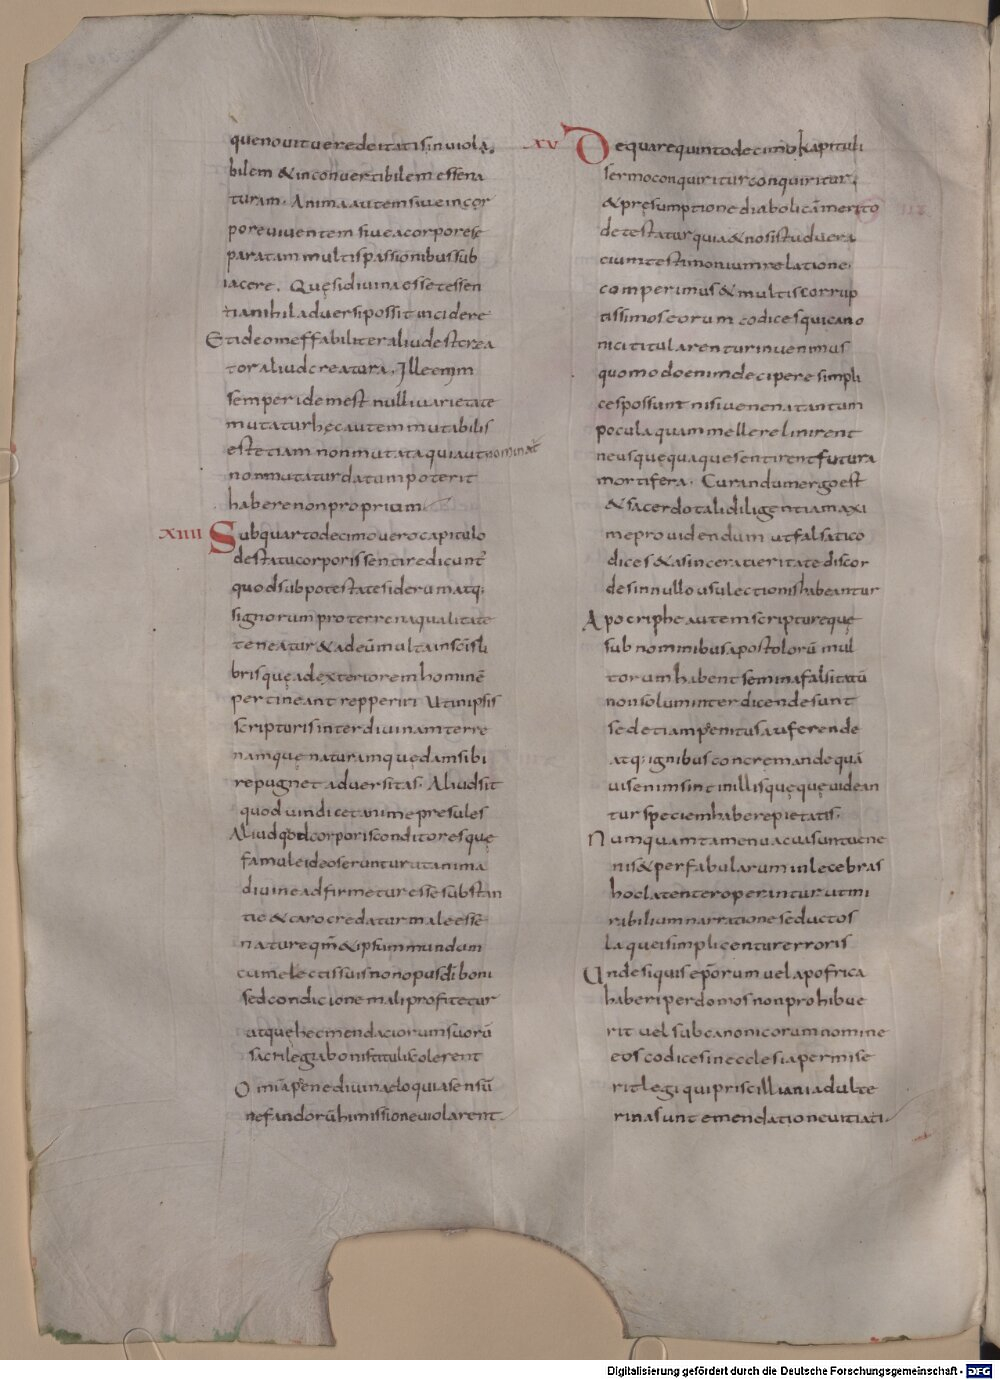 que nouit uere deitatis inuiola
bilem & inconuertibilem esse na
turam. Anima autem siue in cor
pore uiuentem siue a corpore se
paratam multis passionibus sub
iacere. Quę si diuina esset essen
tia nihil aduersi possit incidere
Et ideo ineffabiliter aliud est crea
tor aliud creatura. Ille enim
semper idem est nulli uarietate
mutatur hęc autem mutabilis
est etiam non mutata quia ut
non mutatur datum poterit
habere non proprium
XIIII Sub quarto decimo uero capitulo
de statu corporis sentire dicunt̄
quod sub potestate siderum atq;
signorum pro terrena qualitate
teneatur & adeū multa in sc̄is li
bris quę ad exteriorem hominē
pertineant repperiri Ut in ipsis
scripturis inter diuinam terre
namquę naturam quedam sibi
repugnet aduersitas. Aliud sit
quod uindicet anime presules
Aliud qđ corporis conditores que
famule ideo seruntur ut anima
diuine adfirmetur esse substan
tie & caro credatur male esse
nature qm̄ & ipsum mundum
cum electis suis non opus di boni
sed condicione mali profitetur
atquę hec mendaciorum suorū
sacrilegia bonis titulis colerent
Omia pene diuina eloquia sensū
nefandorū himissione uiolarent
XV De qua re quinto decimo kapituli
sermo conquiritur conquiritur.
& pręsumptione diabolicā merito
detestatur quia & nos istud uera
cium testimonium relatione
comperimus & multis corrup
tissimos eorum codices qui cano
nici titularentur inuenimus
quomodo enim decipere simpli
ces possunt nisi uenenata ntum
pocula quam melle relinirent
ne usquequaque sentirent futura
mortifera. Curandum ergo est
& sacerdotali diligentia maxi
me prouidendum ut falsati co
dices & a sincera ueritate discor
des in nullo usu lectionis habeantur
Apocriphe autem scripture que
sub nominibus apostolorū mul
torum habent semina falsitatū
non solum interdicende sunt
sed etiam pęnitus auferende
atq; ignibus concremande quā
uis enim sint in illis quęque uidean
tur speciem habere pietatis.
Numquam tamen uacua sunt uene
nis & per fabularum inlecebras
hoc latenter operantur ut mi
rabilium narratione seductos
laqueis implicentur erroris
Unde si quis ep̄orum uel apofrica
haberi per domos non prohibue
rit uel sub canonicorum nomine
eos codices in ecclesia permise
rit legi qui priscilliani adulte
rina sunt emendatione uitiati.
Digitalisierung gefördert durch die Deutsche Forschungsgemeinschaft - DFG